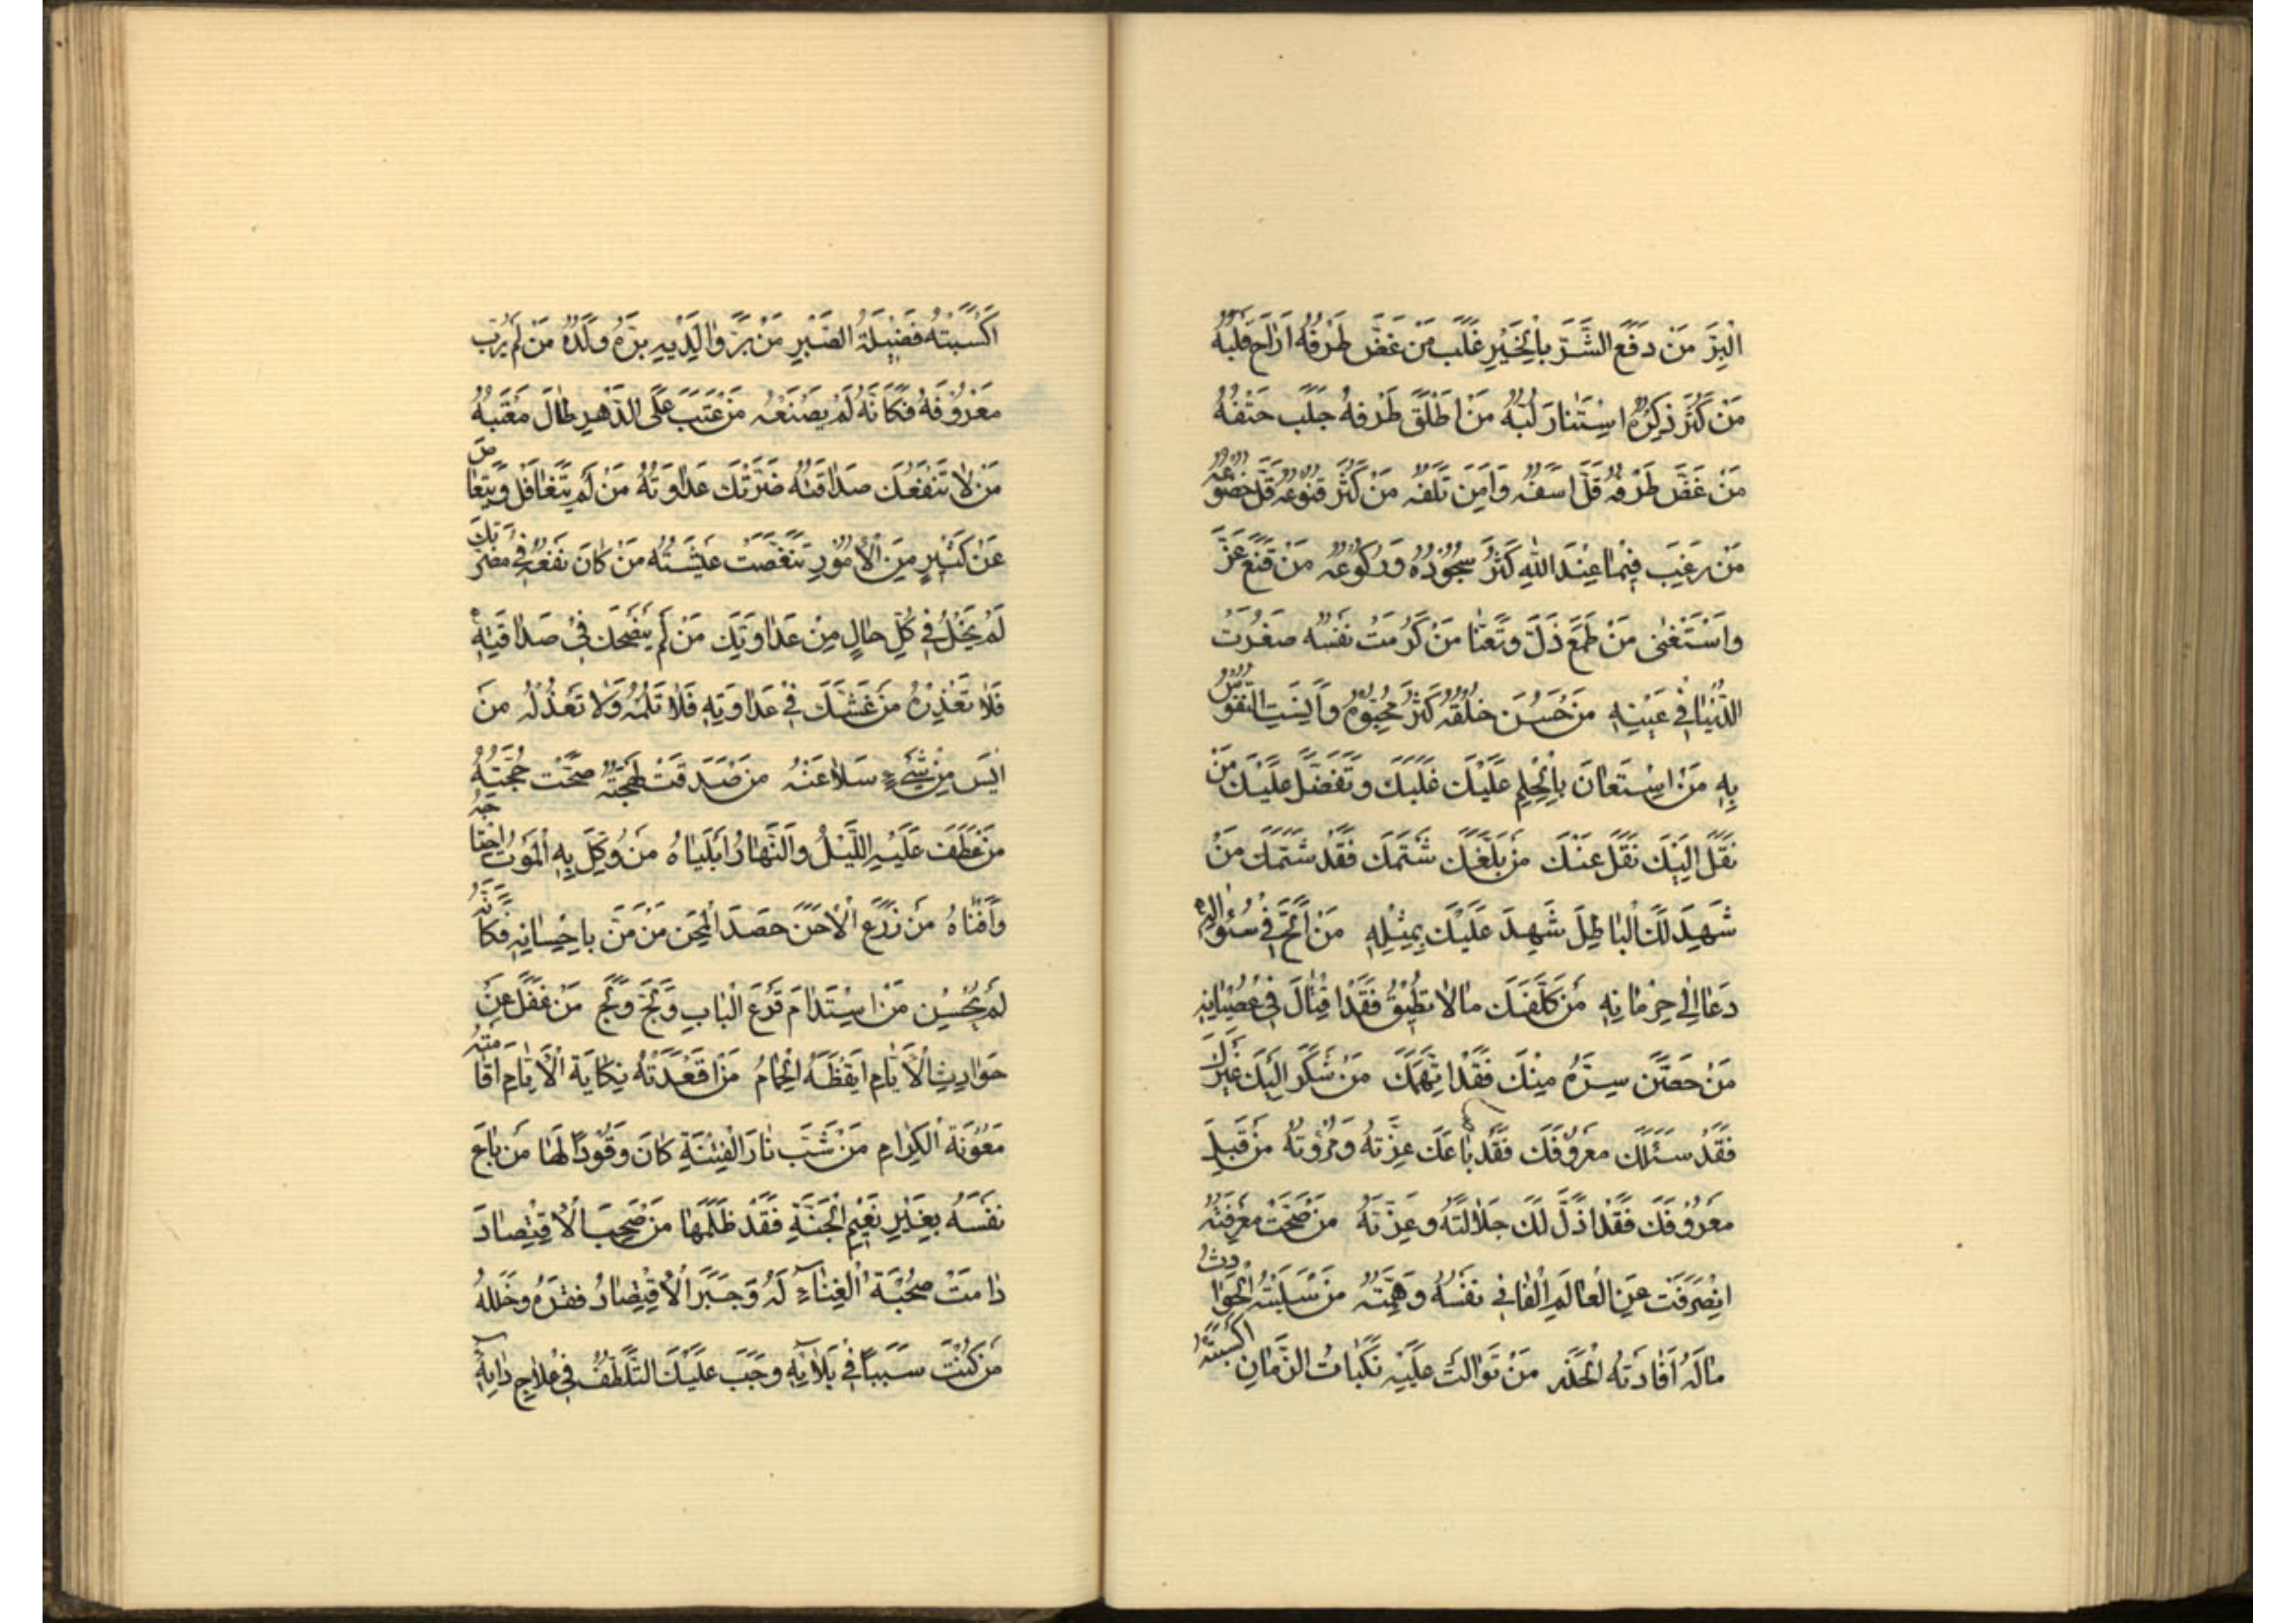 الْبِرَّ مَنْ دَفَعَ الشَّرَّ بِالْخَيْرِ غَلَبَ مَنْ غَضَّ طَرْفَهُ اَرَاحَ قَلْبَهُ
مَنْ كَثُرَ ذِكْرُهُ اسْتَنَارَ لُبُّهُ مَنْ اَطْلَقَ طَرْفَهُ جَلَبَ حَتْفَهُ
مَنْ غَضَّ طَرْفَهُ قَلَّ اَسَفُهُ وَاَمِنَ تَلَفَهُ مَنْ كَثُرَ قُنُوعُهُ قَلَّ خُضُوعُهُ
مَنْ رَغِبَ فِيمَا عِنْدَ اللهِ كَثُرَ سُجُودُهُ وَرُكُوعُهُ مَنْ قَنَعَ عَزَّ
وَاسْتَغْنٰى مَنْ طَمَعَ ذَلَّ وَتَعَنَّا مَنْ كَرُمَتْ نَفْسُهُ صَغُرَتْ
الدُّنْيَا فِي عَيْنِهِ مَنْ حَسُنَ خُلْقُهُ كَثُرَ مُحِبُّوهُ وَاَنِسَتِ النُّفُوسُ
بِهِ مَنِ اسْتَعَانَ بِالْحِلْمِ عَلَيْكَ غَلَبَكَ وَتَفَضَّلَ عَلَيْكَ مَنْ
نَقَلَ اِلَيْكَ نَقَلَ عَنْكَ مَنْ بَلَّغَكَ شَتْمَكَ فَقَدْ شَتَمَكَ مَنْ
شَهِدَ لَكَ بِالْبَاطِلِ شَهِدَ عَلَيْكَ بِمِثْلِهِ مَنْ اَلَحَّ فِي سُؤَالِهِ
دَعَا اِلٰى حِرْمَانِهِ مَنْ كَلَّفَكَ مَالَا تُطِيقُ فَقَدْ اَفْتَاكَ فِي عِصْيَانِهِ
مَنْ حَصَّنَ سِرَّهُ مِنْكَ فَقَدِ اتَّهَمَكَ مَنْ شَكَرَ اِلَيْكَ غَيْرَكَ
فَقَدْ سَئَلَكَ مَعْرُوفَكَ فَقَدْ بَاعَكَ عِزَّتَهُ وَمُرُوَّتَهُ مَنْ قَبِلَ
مَعْرُوفَكَ فَقَدْ اَذَلَّ لَكَ جَلَالَتَهُ وَعِزَّتَهُ مَنْ صَحَّتْ مَعْرِفَتُهُ
انْصَرَفَتْ عَنِ الْعَالَمِ الْفَانِي نَفْسُهُ وَهِمَّتُهُ مَنْ سَلَبَتْهُ الْحَوَادِثُ
مَالَهُ اَفَادَتْهُ الْحَذَرَ مَنْ تَوَالَتْ عَلَيْهِ نَكَبَاتُ الزَّمَانِ اكْسَبَتْهُ
اَكْسَبَتْهُ فَضِيلَةَ الصَّبْرِ مَنْ بَرَّ وَالِدَيْهِ بَرَّهُ وَلَدُهُ مَنْ لَمْ يُرَبِّ
مَعْرُوفَهُ فَكَاَنَّهُ لَمْ يَصْنَعْهُ مَنْ عَتَبَ عَلَى الدَّهْرِ طَالَ مَعْتَبُهُ
مَنْ لَا تَنْفَعُكَ صَدَاقَتُهُ ضَرَّتْكَ عَدَاوَتُهُ مَنْ لَمْ يَتَغَافَلْ وَيَتَغَاضَ
عَنْ كَثِيرٍ مِنَ الْاُمُورِ تَنَغَّصَتْ عِيشَتُهُ مَنْ كَانَ نَفْعُهُ فِي مَضَرَّتِكَ
لَمْ يَخْلُ فِي كُلِّ حَالٍ مِنْ عَدَاوَتِكَ مَنْ لَمْ يَنْصَحْكَ فِي صَدَاقَتِهِ
فَلَا تَعْذِرْهُ مَنْ غَشَّكَ فِي عَدَاوَتِهِ فَلَا تَلُمْهُ وَلَا تَعْذُلْهُ مَنْ
اَيِسَ مِنْ شَيْءٍ سَلَا عَنْهُ مَنْ صَدَقَتْ لَهْجَتُهُ صَحَّتْ حُجَّتُهُ
مَنْ عَطَفَ عَلَيْهِ اللَّيْلُ وَالنَّهَارُ اَبْلَيَاهُ مَنْ وُكِّلَ بِهِ الْمَوْتُ اجْتَاحَهُ
وَاَفْنَاهُ مَنْ زَرَعَ الْاِحَنَ حَصَدَ الْمِحَنَ مَنْ مَنَّ بِاِحْسَانِهِ فَكَاَنَّهُ
لَمْ يُحْسِنْ مَنِ اسْتَدَامَ قَرْعَ الْبَابِ وَلَجَّ وَلَجَ مَنْ غَفَلَ عَنْ
حَوَادِثِ الْاَيَّامِ اَيْقَظَهُ الْحِمَامُ مَنْ اَقْعَدَتْهُ نِكَايَةُ الْاَيَّامِ اَقَامَتْهُ
مَعُونَةُ الْكِرَامِ مَنْ شَبَّ نَارَ الْفِتْنَةِ كَانَ وَقُودًا لَهَا مَنْ بَاعَ
نَفْسَهُ بِغَيْرِ نَعِيمِ الْجَنَّةِ فَقَدْ ظَلَمَهَا مَنْ صَحِبَ الْاِقْتِصَادَ
دَامَتْ صُحْبَةُ الْغِنَاءِ لَهُ وَجَبَرَ الْاِقْتِصَادُ فَقْرَهُ وَخَلَلَهُ
مَنْ كُنْتَ سَبَبًا فِي بَلَائِهِ وَجَبَ عَلَيْكَ التَّلَطُّفُ فِي عِلَاجِ دَائِهِ